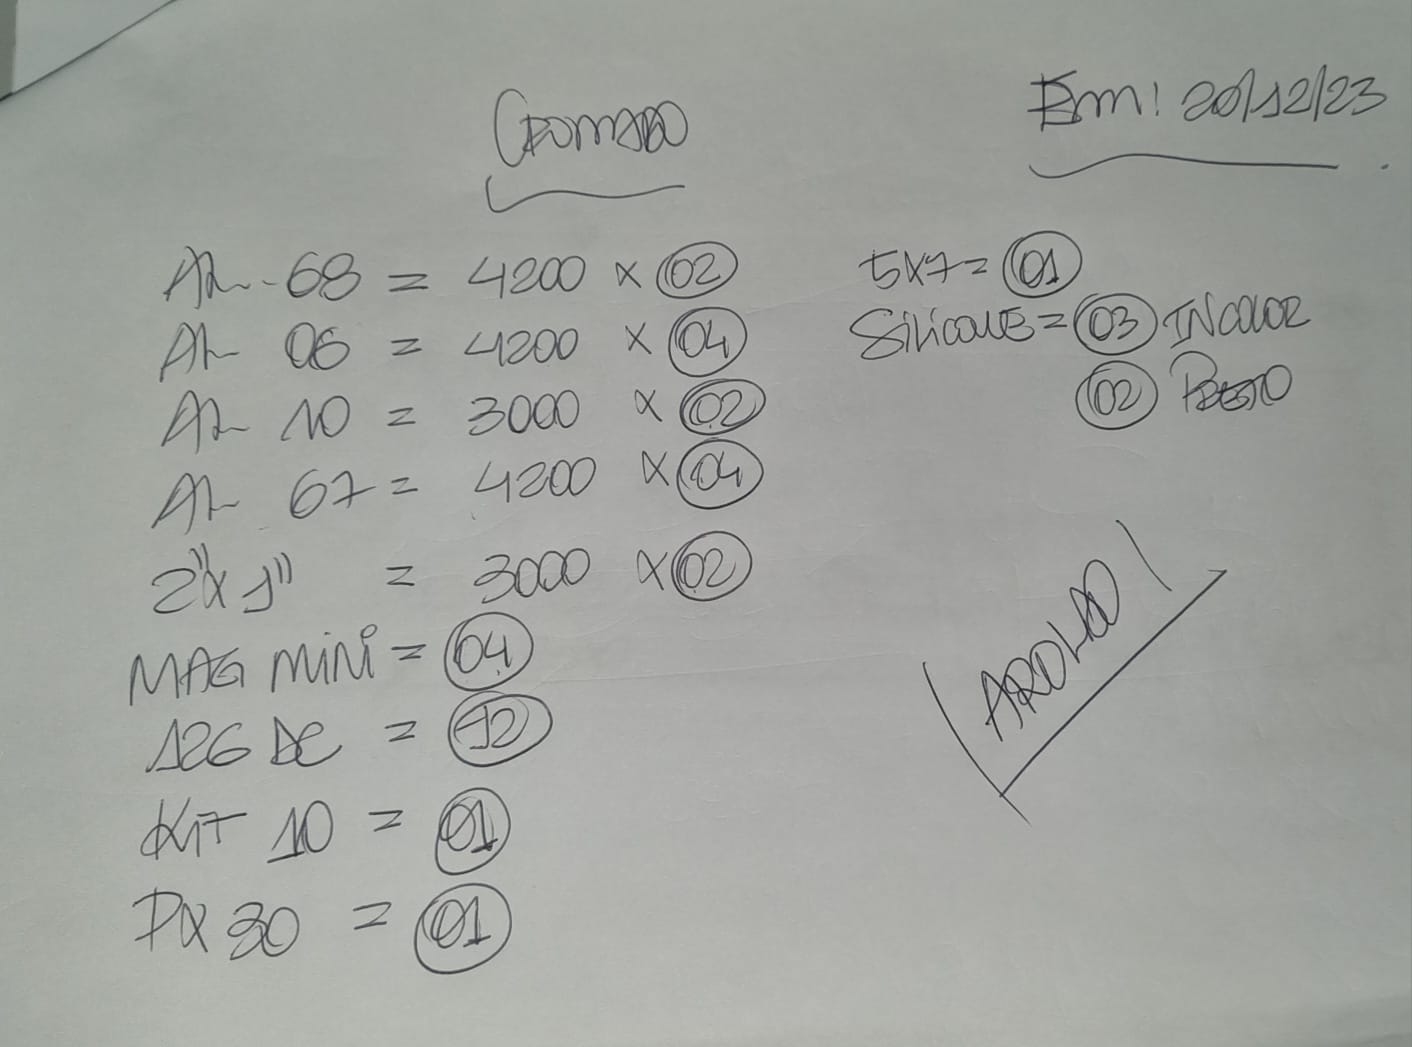 Cromado
Em: 20/12/23
AL-68 = 4200 x 02
AL 06 = 4200 x 04
AL 10 = 3000 x 02
AL 67 = 4200 x 04
2"x1" = 3000 x 02
MAG MiNi = 04
126 DC = 12
KIT 10 = 01
PX 30 = 01
5x7 = 01
SiLiCONE = 03 INCOLOR
02 PRETO
AROLDO